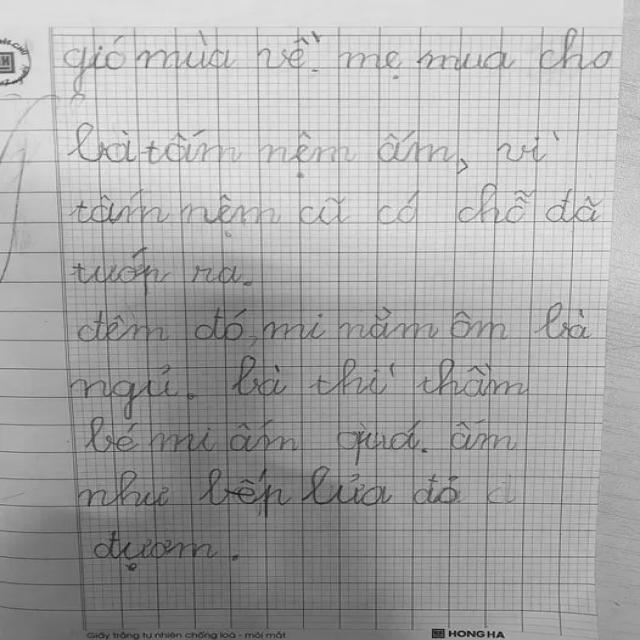 gió mùa về. mẹ mua cho
bà tấm nệm ấm, vì
tấm nệm cũ có chỗ đã
tướp ra.
đêm đó, mi nằm ôm bà
ngủ. bà thì thầm
bé mi ấm quá. ấm
như bếp lửa đỏ d
đượm.
Giấy trắng tự nhiên chống loá - mỏi mắt
HONG HA